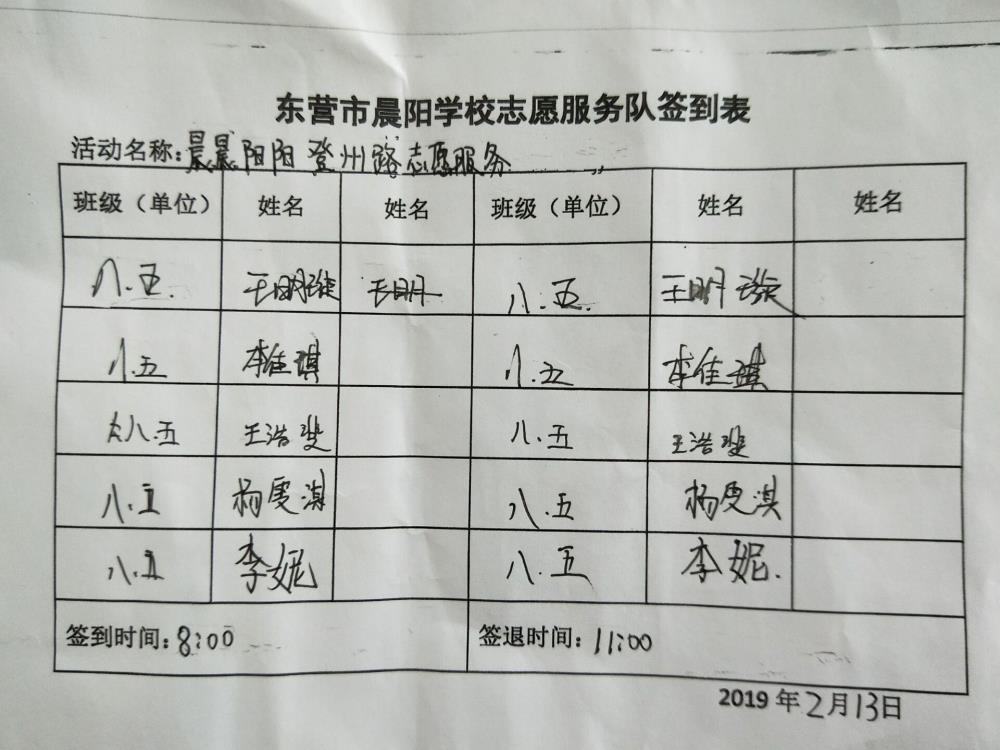 东营市晨阳学校志愿服务队签到表
活动名称:晨晨阳阳登州路志愿服务
班级（单位） 姓名 姓名 班级（单位） 姓名 姓名
八.五. 王明璇 王明 八.五. 王明璇
八.五 李佳琪 八.五 李佳琪
八.五 王浩斐 八.五 王浩斐
八.五 杨雯淇 八.五 杨雯淇
八.五 李妮 八.五 李妮.
签到时间:8:00 签退时间:11:00
2019年2月13日